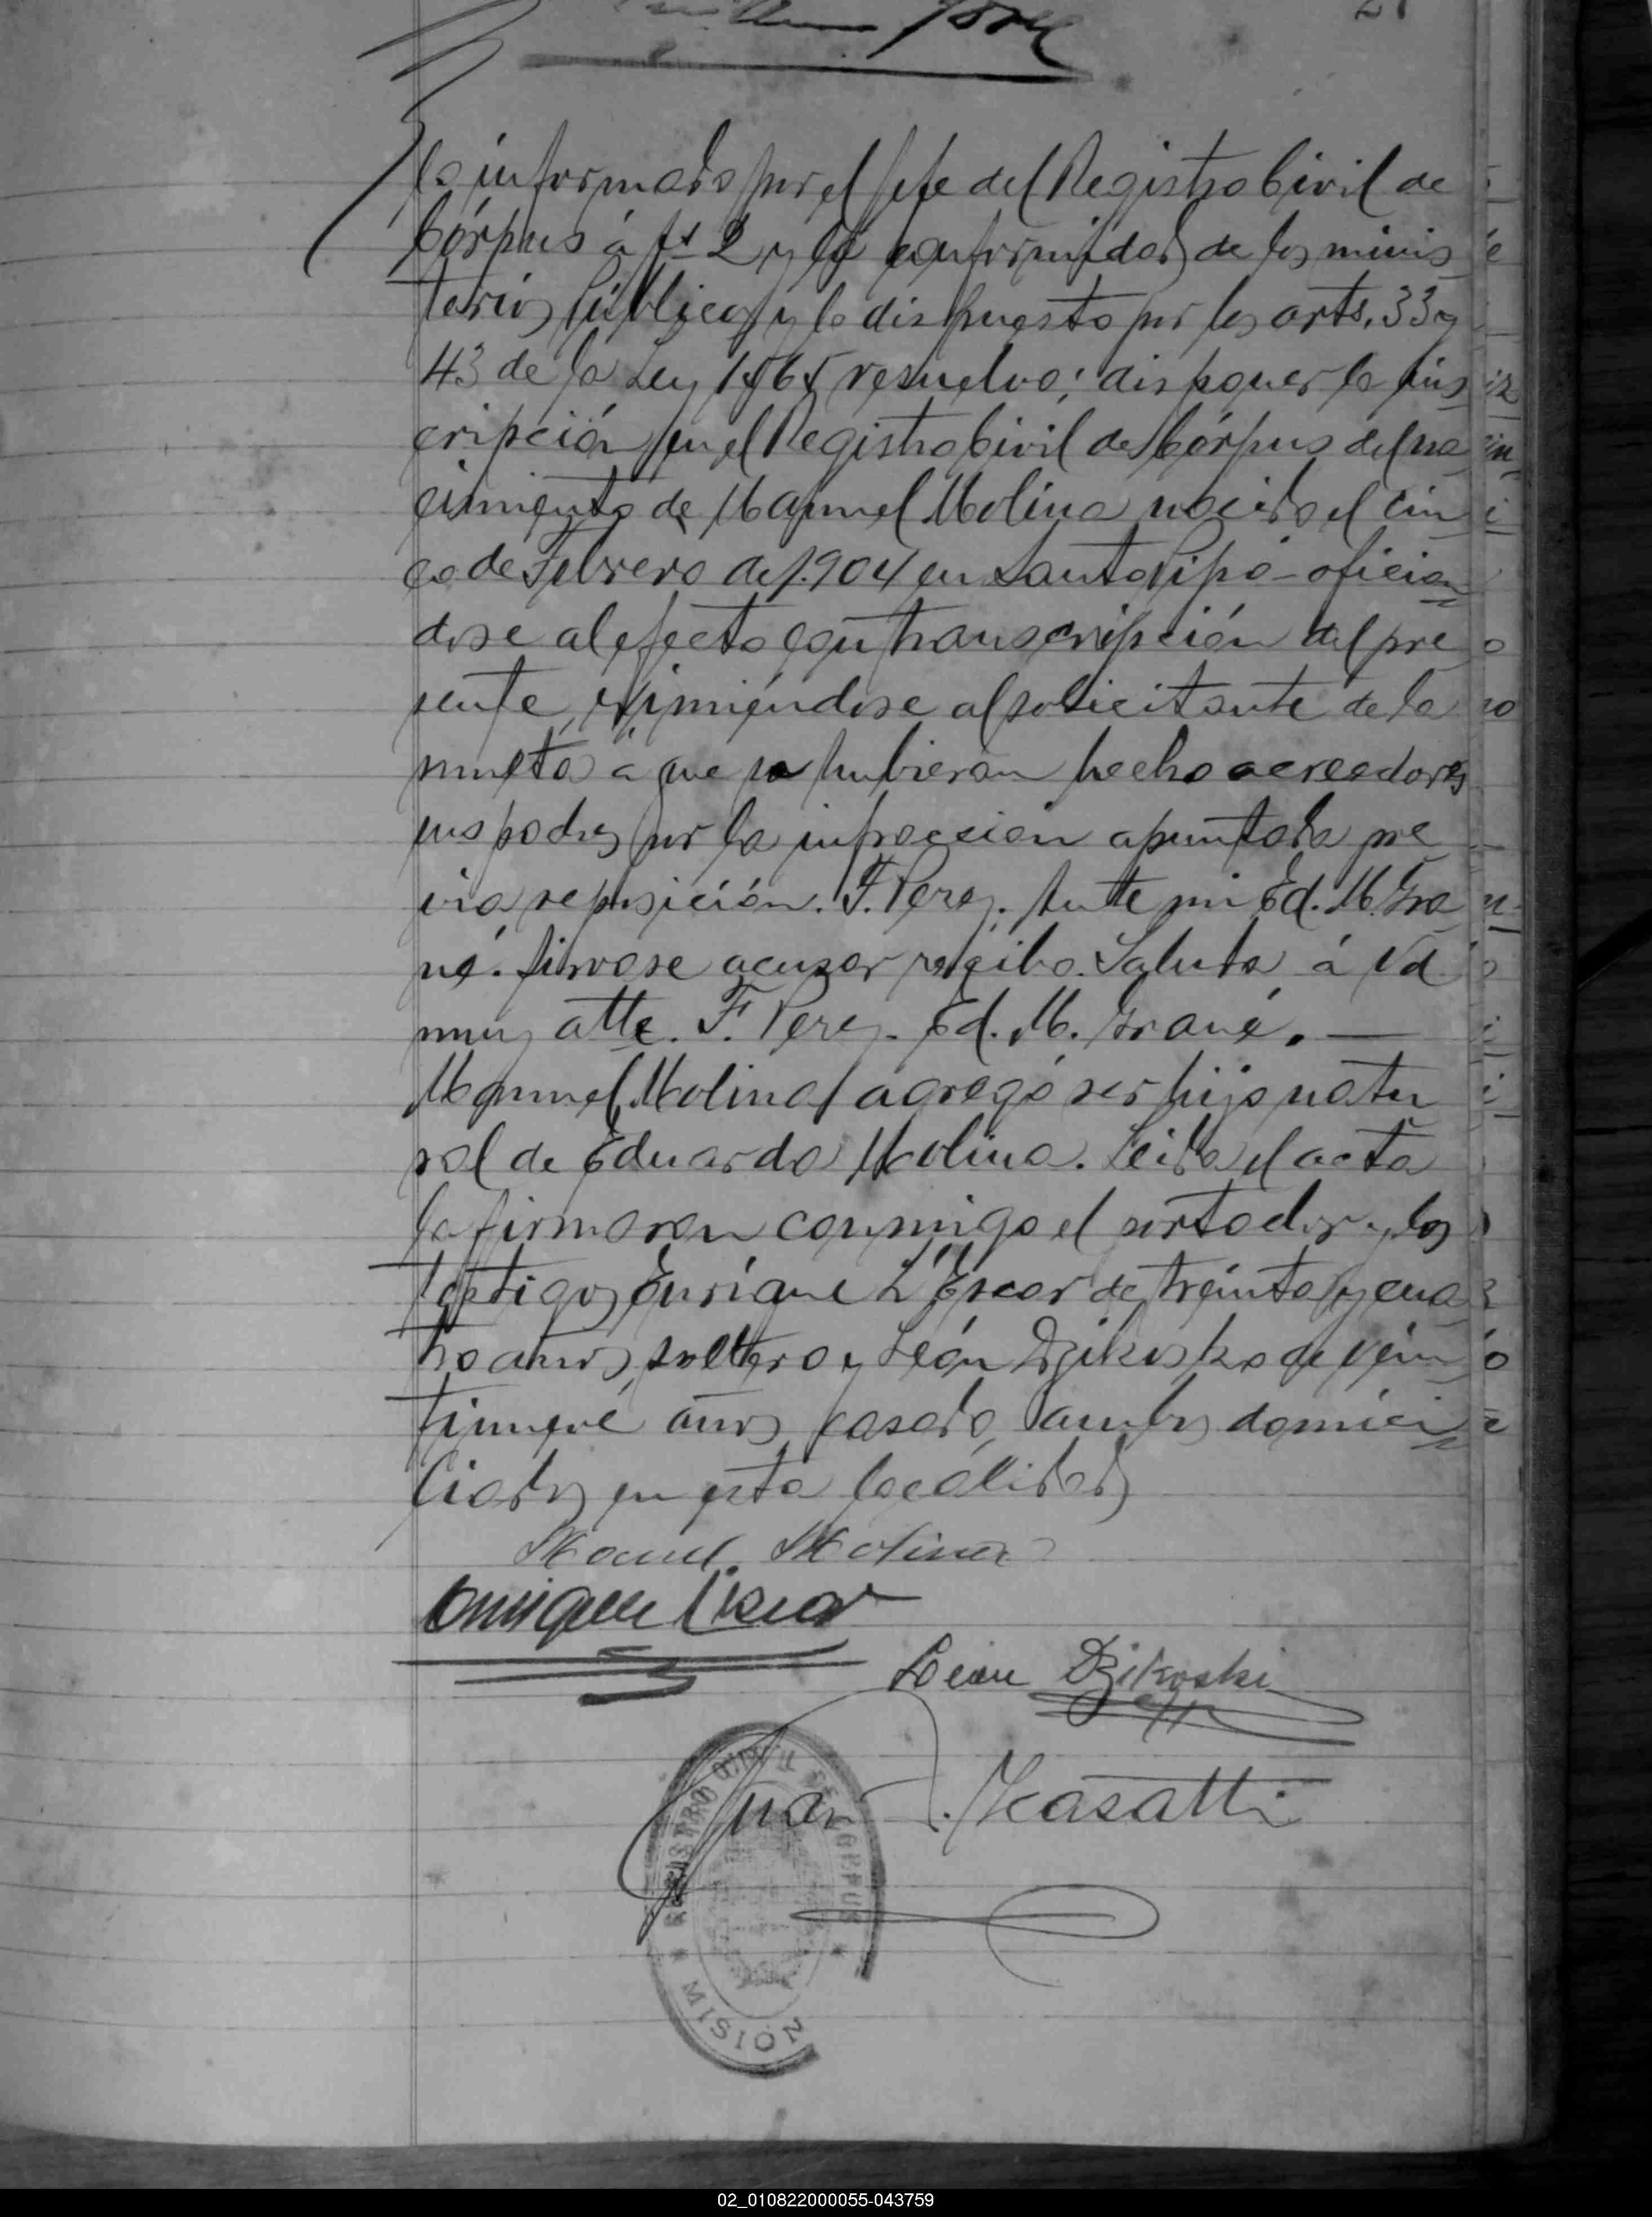 lo informado por el Jefe del Registro Civil de
Córpus á fs 2 y la conformidad de los minis
terios públicos y lo dispuesto por los arts. 33 y
43 de la Ley 1565 resuelvo: disponer la ins
cripción en el Registro Civil de Córpus del na
cimiento de Manuel Molina nacido el cin
co de Febrero de 1.904 en Santo Pipó - oficián
dose al efecto con transcripción del pre
sente, eximiéndose al solicitante de la
multa a que se hubieran hecho acreedores
sus padres por la infracción apuntada pre
via reposición. F. Perez. Ante mi Ed. M. Gra
né. Sirvase acusar recibo. Saluda á Vd
muy atte. F. Perez - Ed. M. Grané. —
Manuel Molina agregó ser hijo natu
ral de Eduarda Molina. Leida el acta
la firmaron conmigo el portador y los
testigos Enrique L'Escar de treinta y cua
tro años, soltero y León Dzikoski de vein
tinueve años, casado, ambos domici
liados en esta localidad
Manuel Molina
Enrique L'Escar
León Dzikoski
Juan . Masatti
REGISTRO CIVIL DE CORPUS
MISION
02_010822000055-043759